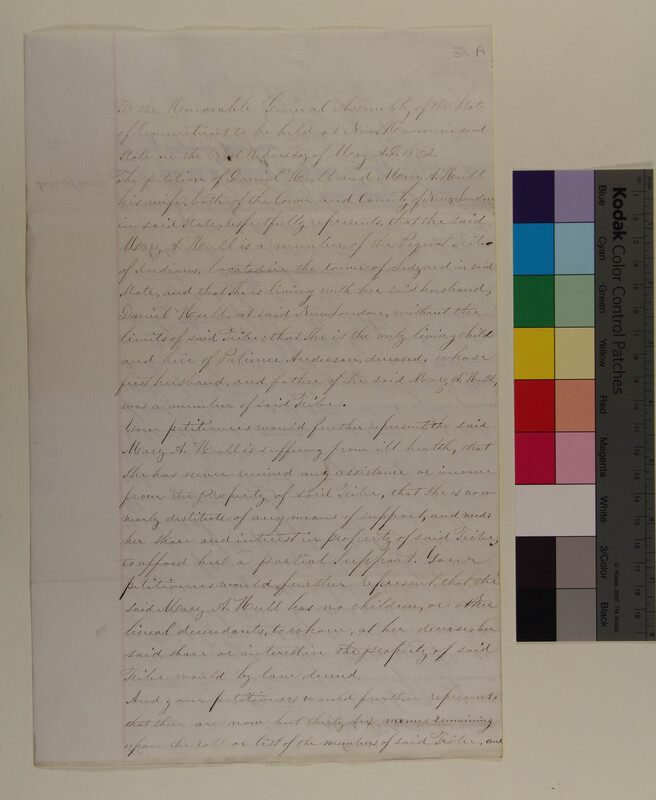 52 A
To the Honorable General Assembly of the State
of Connecticut to be held at New Haven in said
State on the first Wednesday of May A.D. 1862.
The petition of Daniel Hull and Mary A. Hull
his wife, both of the town and County of New London
in said State, respectfully represents, that the said
Mary A. Hull is a member of the Pequod Tribe
of Indians, located in the town of Ledyard in said
State, and that she is living with her said husband,
Daniel Hull, at said New London, without the
limits of said Tribe; that she is the only living child
and heir of Patience Anderson, deceased, whose
first husband, and father of the said Mary A. Hull,
was a member of said Tribe.
Your petitioners would further represent, the said
Mary A. Hull is suffering from ill health, that
she has never received any assistance or income
from the property of said Tribe, that she is now
nearly destitute of any means of support, and needs
her share and interest in property of said Tribe,
to afford her a partial support. Your
petitioners would further represent, that the
said Mary A. Hull has no children, or other
lineal descendants, to whom, at her decease, her
said share or interest in the property of said
Tribe would by law descend.
And your petitioners would further represent,
that there are now but thirty six names remaining
upon the roll or list of the members of said Tribe, and
Kodak Color Control Patches
Blue
Cyan
Green
Yellow
Red
Magenta
White
3/Color
Black